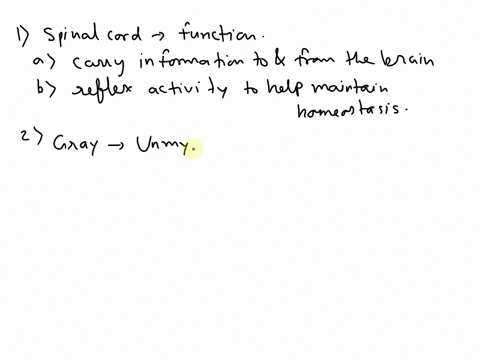 1) Spinal cord → function.
a) Carry information to & from the brain
b) reflex activity to help maintain
homeostasis.
2) Gray → Unmy.